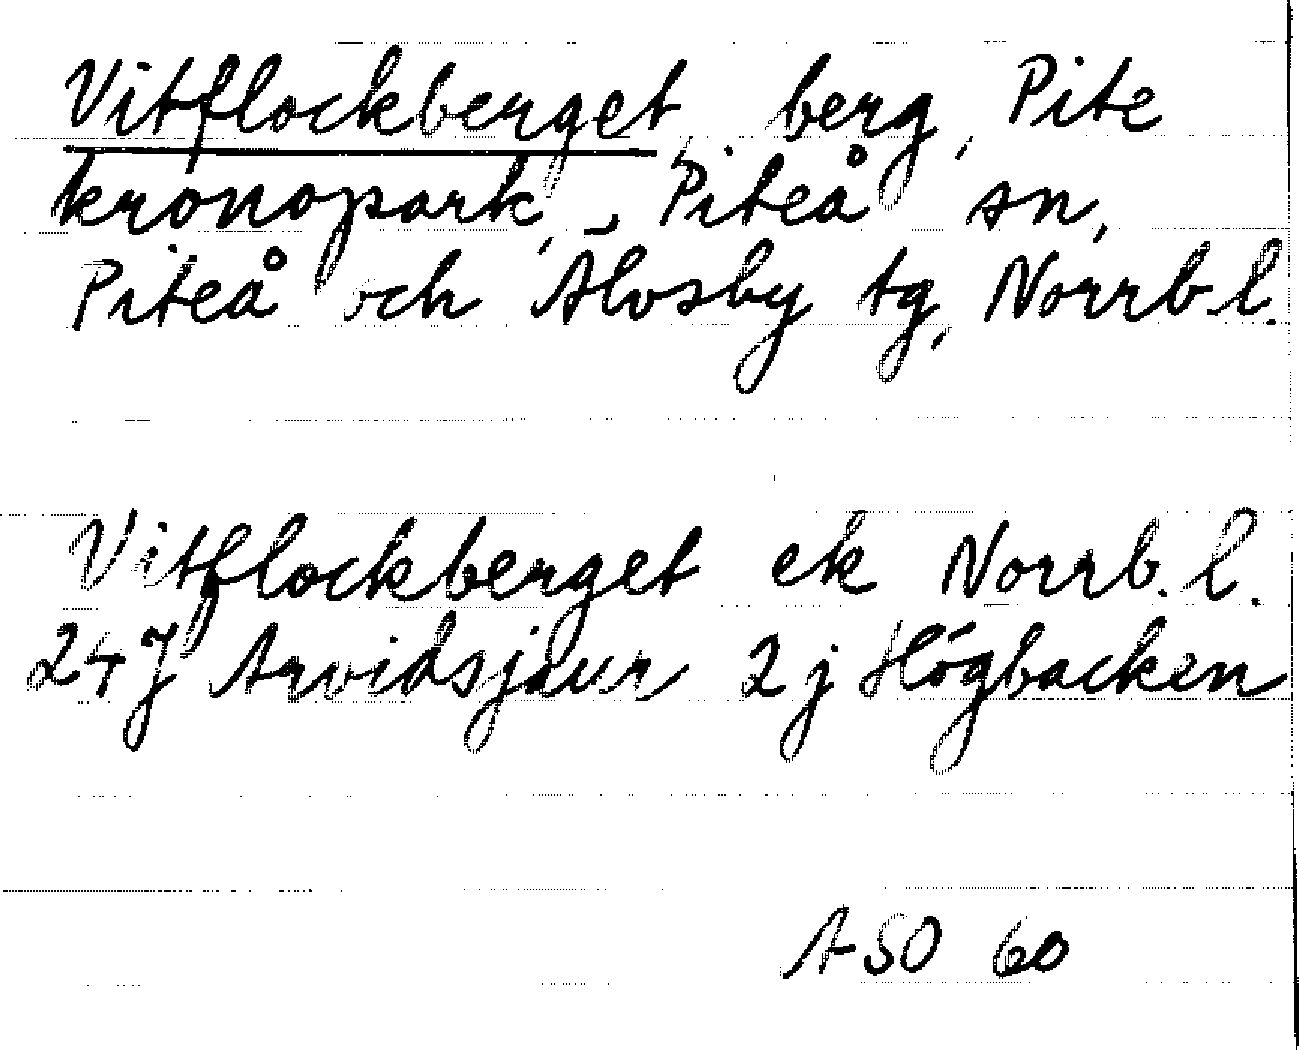 Vitflockberget, berg, Pite
kronopark, Piteå sn,
Piteå och Älvsby tg, Norrb.l.
Vitflockberget ek Norrb. l.
24J Arvidsjaur 2 j Högbacken
ASO 60